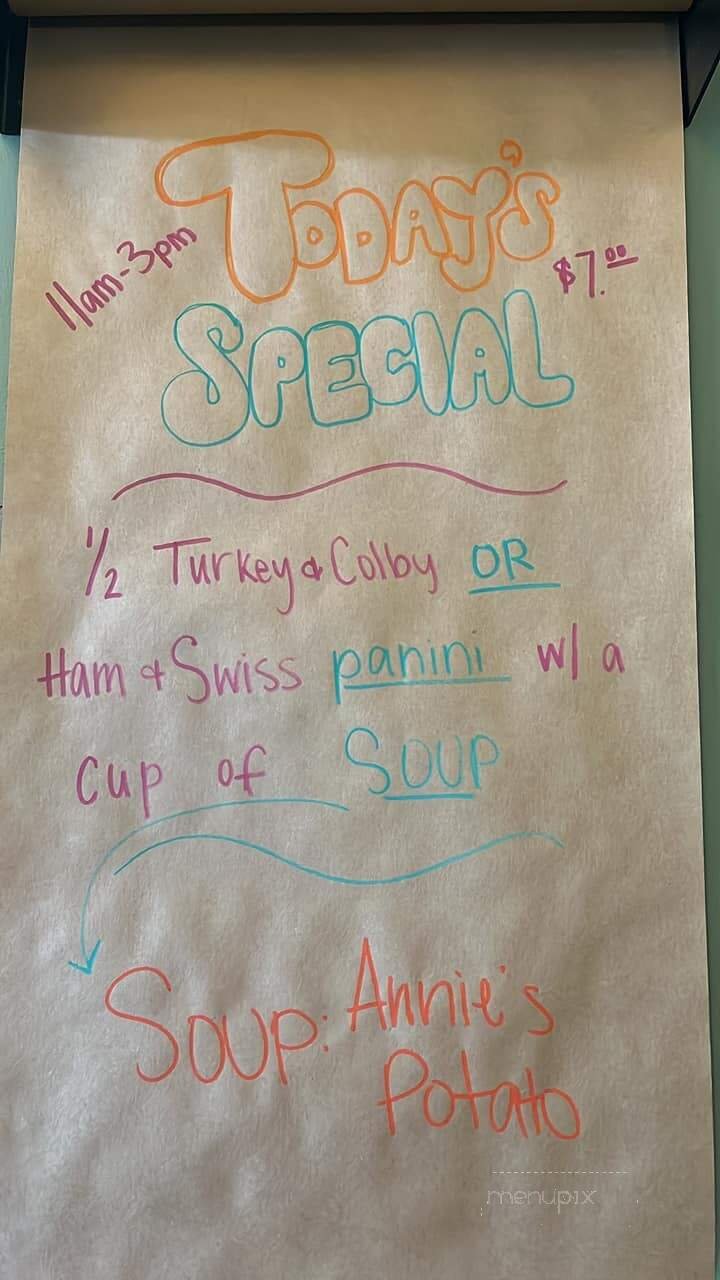 TODAY'S
11am-3pm
$7.00
SPECIAL
1/2 Turkey & Colby OR
Ham & Swiss panini w/ a
cup of SOUP
Soup: Annie's
Potato
menupix